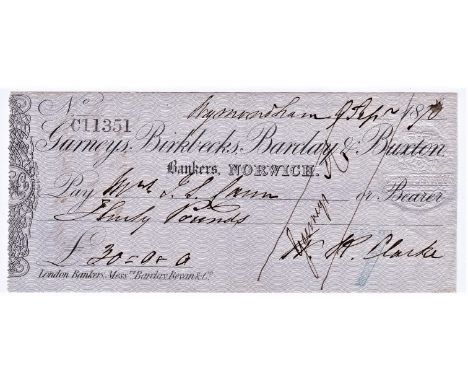 Wymondham 9 Sepr 1870
No C11351
Gurneys, Birkbecks, Barclay & Buxton.
Bankers, NORWICH.
Pay or Bearer
Thirty Pounds
£ 30=0=0 W. R. Clarke
London Bankers, Messrs Barclay, Bevan & Co.
Gurneys & Co